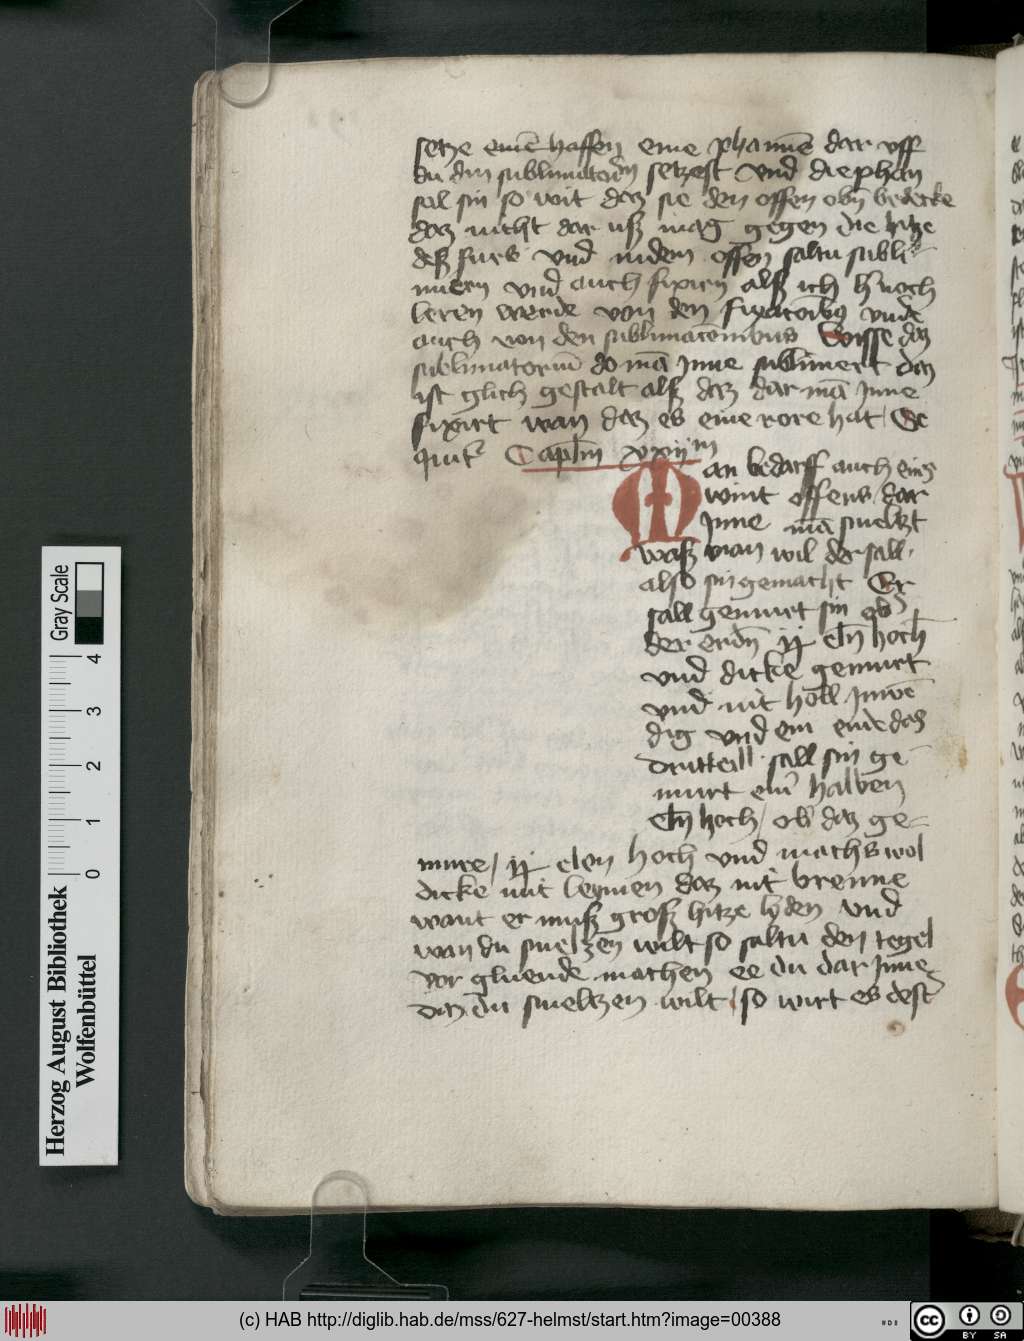 setze eine haffen eine phanne dar uff
du din sublimatoriu setzest vnd die phan
sal sin so wit daz sie den offen obn bedecke
daz nicht dar uß mag gegen die hitze
deß furs vnd in dem offen saltu subli
miern vnd auch fixirn alß ich h noch
leren werde von den fixacoibus vnde
auch von den sublimacionibus Wisse daz
sublimatoriu do ma Inne sublimert daz
ist glich gestalt alß daz dar ma Inne
fixirt wan daz es eine rore hat / Se
quit Caplm xxiij m
Man bedarff auch eins
wint offens dar
Inne ma smeltzt
waß man wil der sall
also sin gemacht Er
sall gemurt sin ob
der erdn ij eln hoch
vnd dicke gemurt
vnd nit holl Inwe
dig vnd ein ende daz
dritteill sall sin ge
murt ein halben
eln hoch / ob daz ge-
mure / ij elen hoch vnd machs wol
dicke mit leymen daz nit brenne
want er muß groß hitze lyden vnd
wan du smeltzen wilt so saltu den tegel
vor gluende machen ee du dar Inne
daz du smeltzen wilt / so wirt es dest
Herzog August Bibliothek
Wolfenbüttel
0 1 2 3 4
Gray Scale
(c) HAB http://diglib.hab.de/mss/627-helmst/start.htm?image=00388
cc BY SA